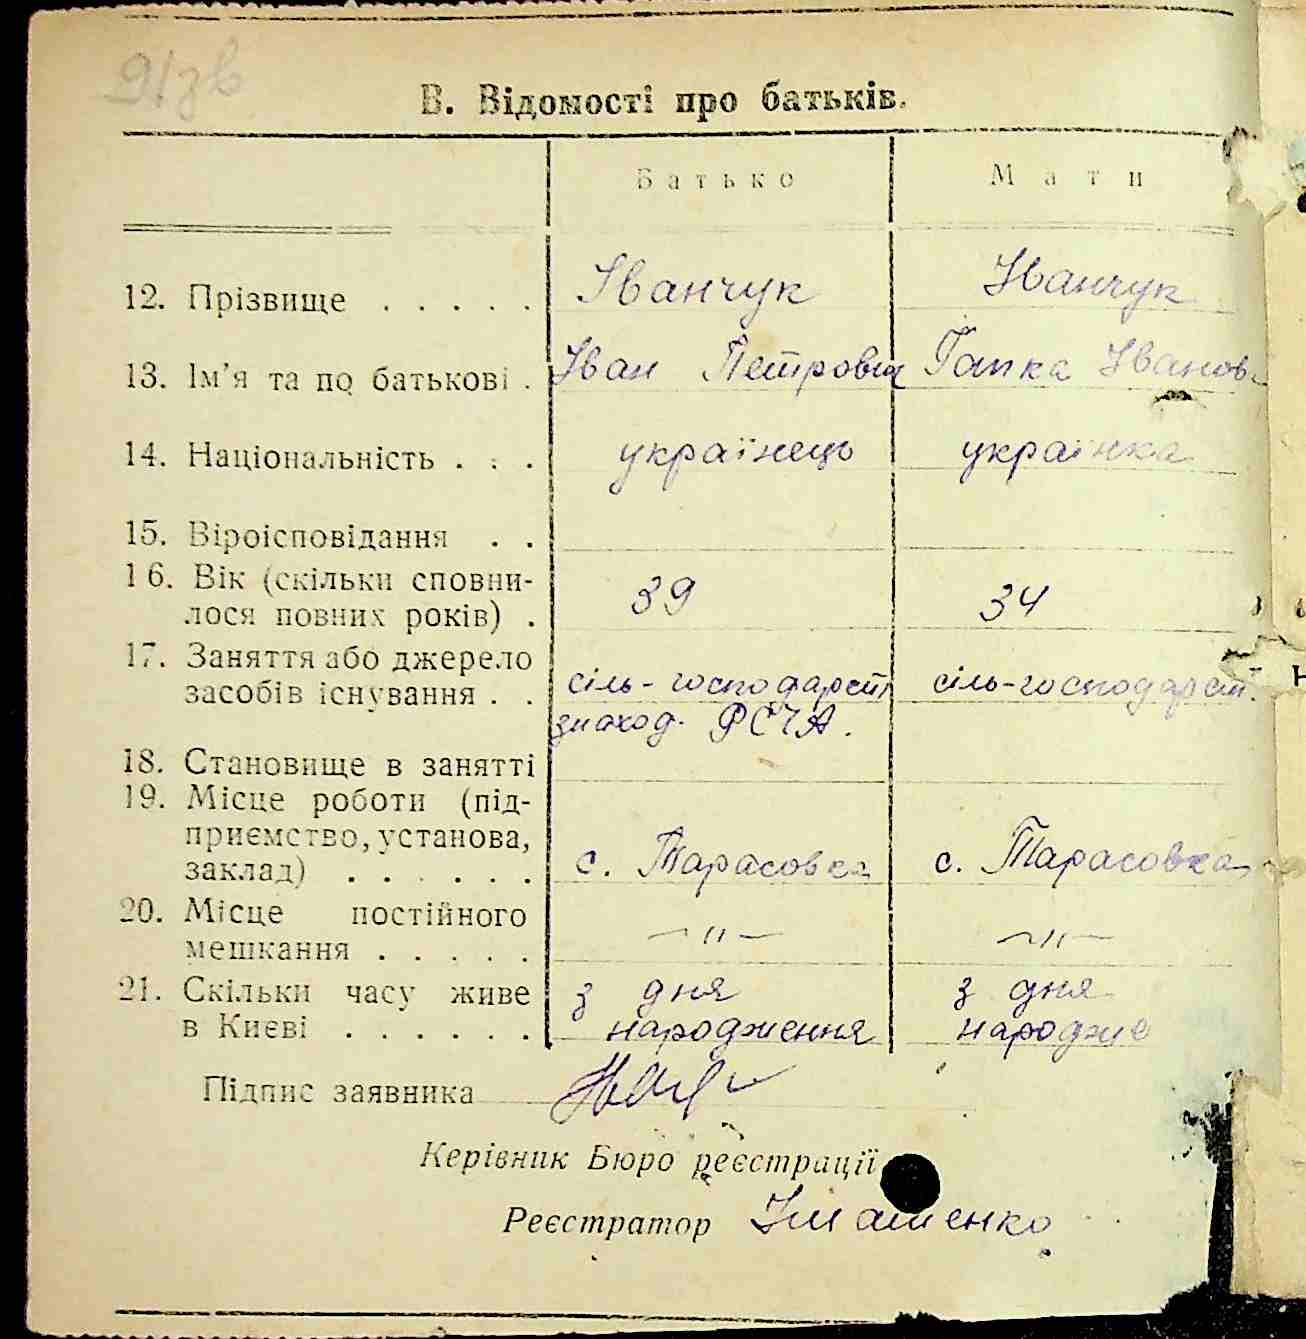 91зв
В. Відомості про батьків.
Батько Мати
12. Прізвище . . . . . Іванчук Іванчук
13. Ім’я та по батькові . Іван Петрович Гапка Іванов.
14. Національність . . . українець українка
15. Віроісповідання . .
16. Вік (скільки сповни-
лося повних років) . 39 34
17. Заняття або джерело
засобів існування . . сіль-господарст. сіль-господарст.
знаход. РСЧА.
18. Становище в занятті
19. Місце роботи (під-
приємство, установа,
заклад) . . . . . . с. Тарасовка с. Тарасовка
20. Місце постійного
мешкання . . . . . —"— —"—
21. Скільки часу живе з дня з дня
в Києві . . . . . . народження народже
Підпис заявника
Керівник Бюро реєстрації
Реєстратор